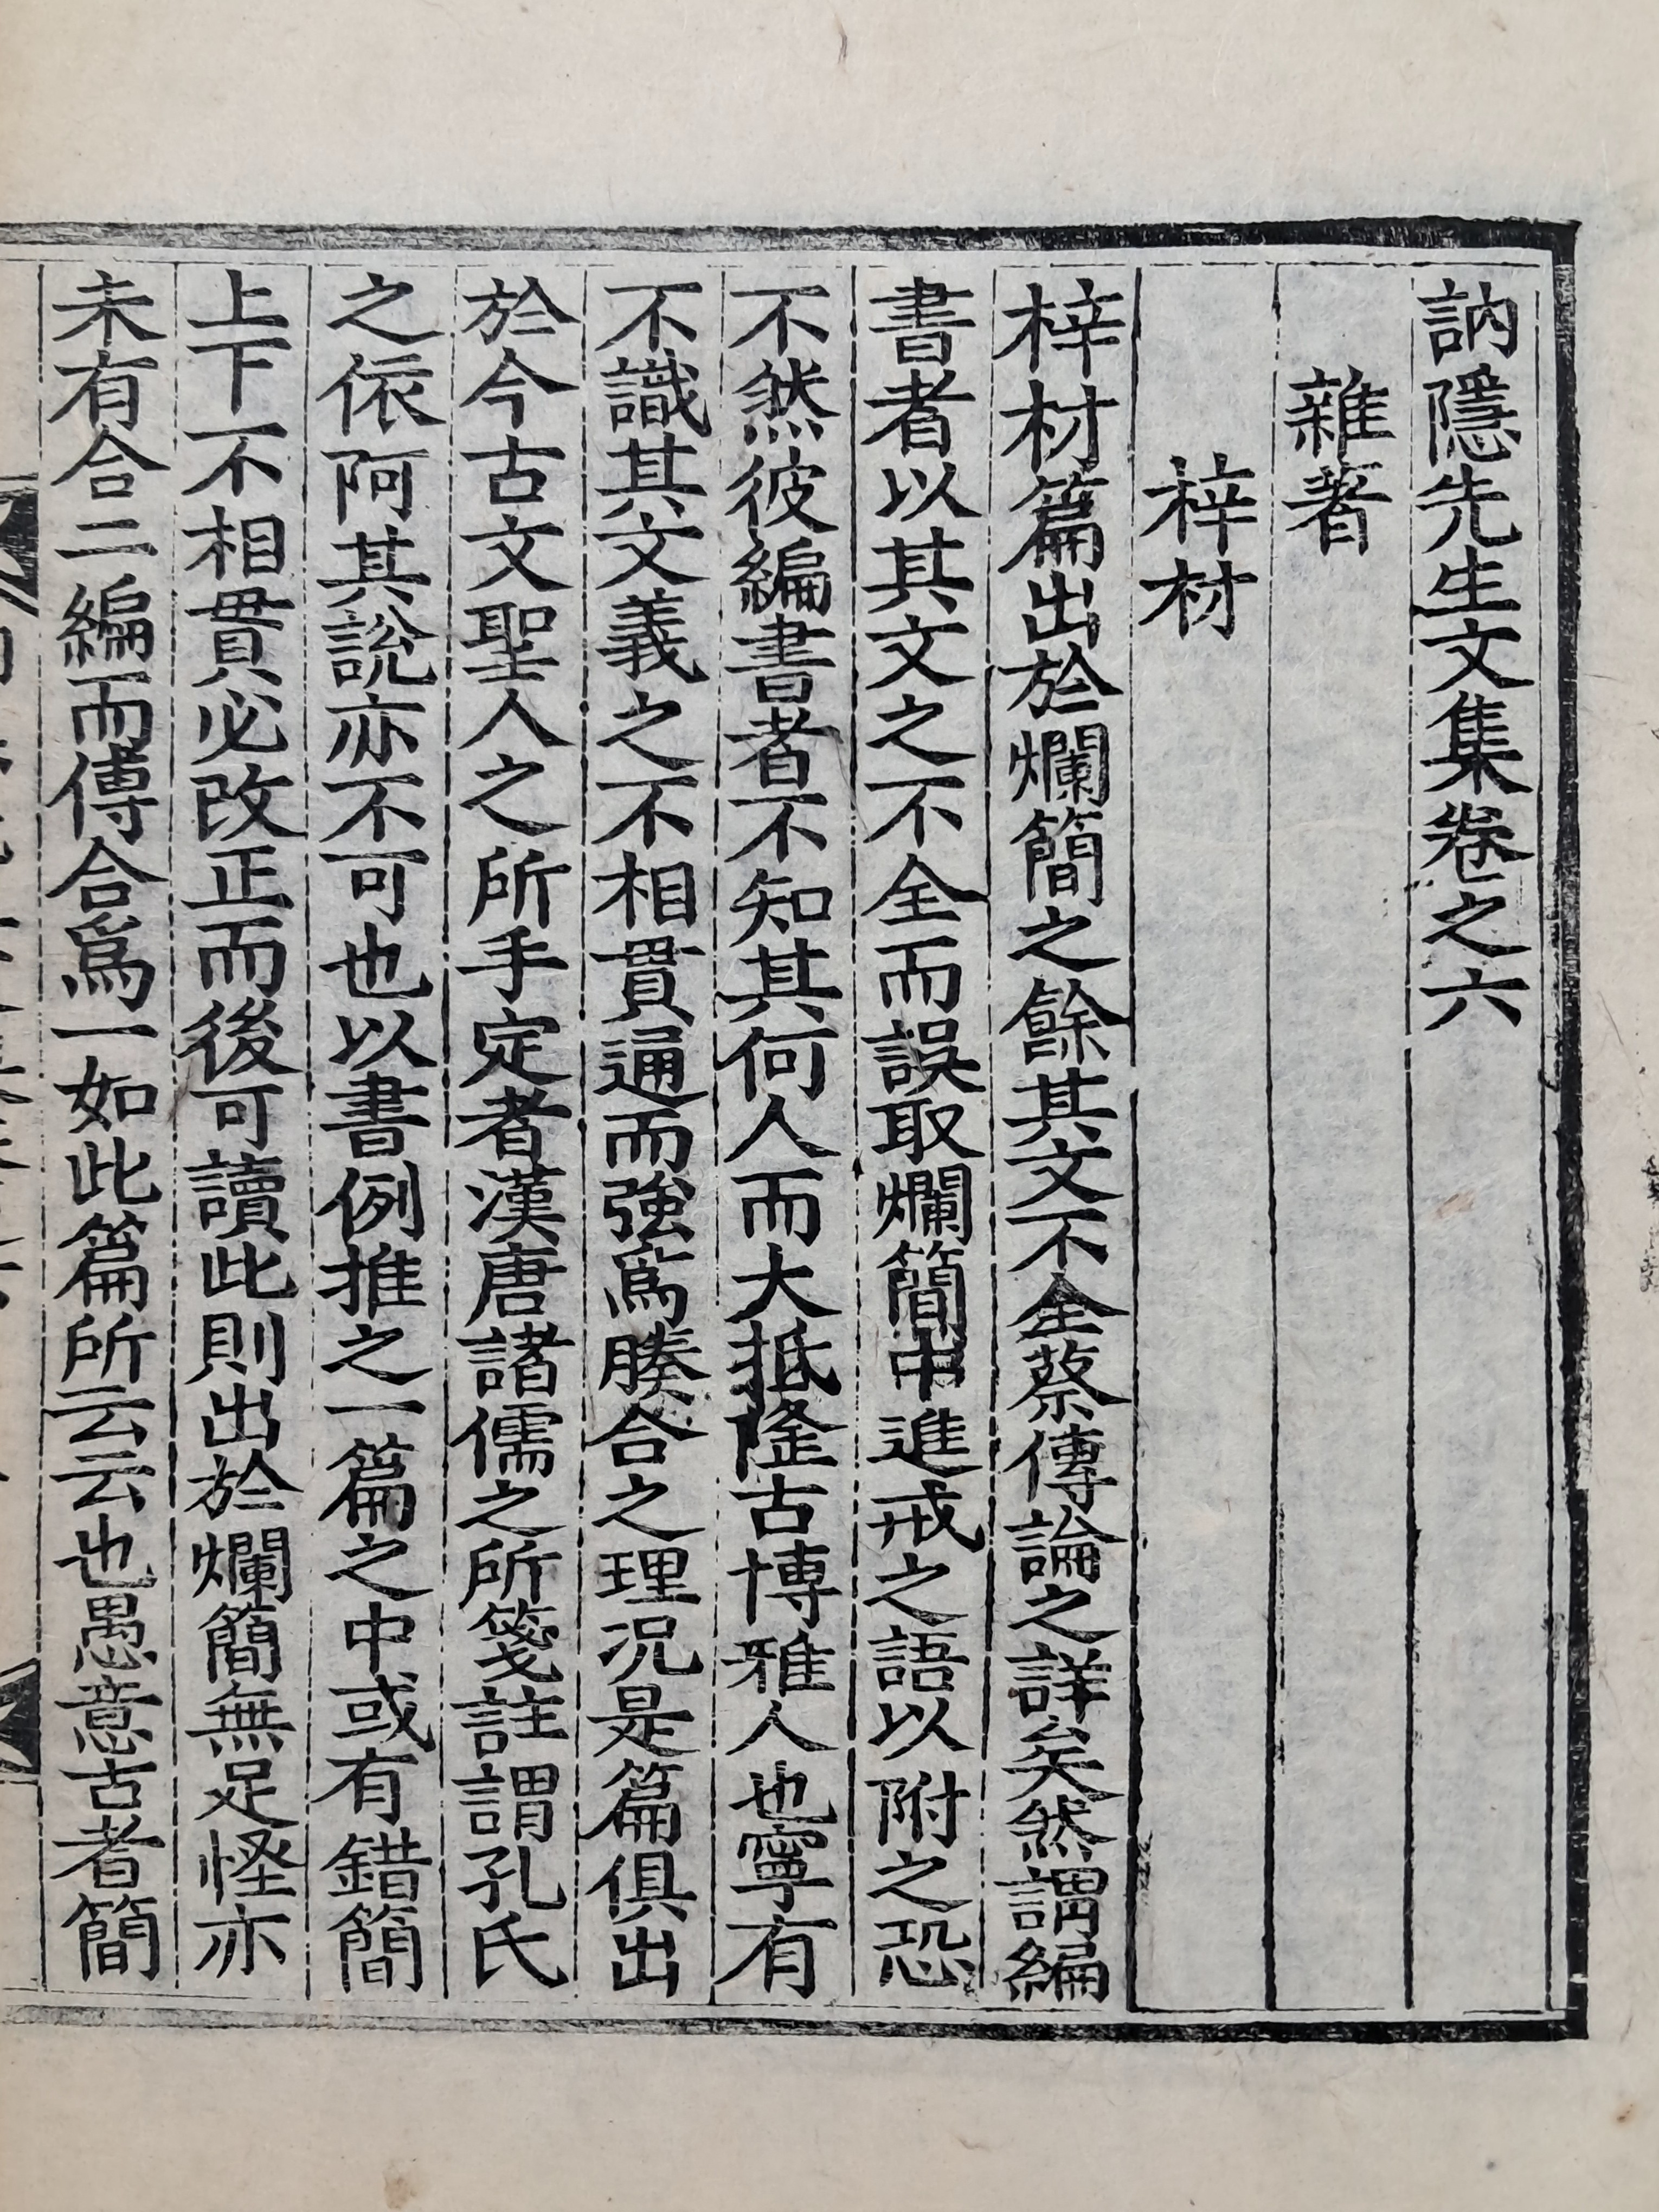 訥隱先生文集卷之六
雜著
梓材
梓材篇出於爛簡之餘其文不全蔡傳論之詳矣然謂編
書者以其文之不全而誤取爛簡中進戒之語以附之恐
不然彼編書者不知其何人而大抵隆古博雅人也寧有
不識其文義之不相貫通而強爲湊合之理况是篇俱出
於今古文聖人之所手定者漢唐諸儒之所箋註謂孔氏
之依阿其說亦不可也以書例推之一篇之中或有錯簡
上下不相貫必改正而後可讀此則出於爛簡無足怪亦
未有合二編而傅合爲一如此篇所云云也愚意古者簡